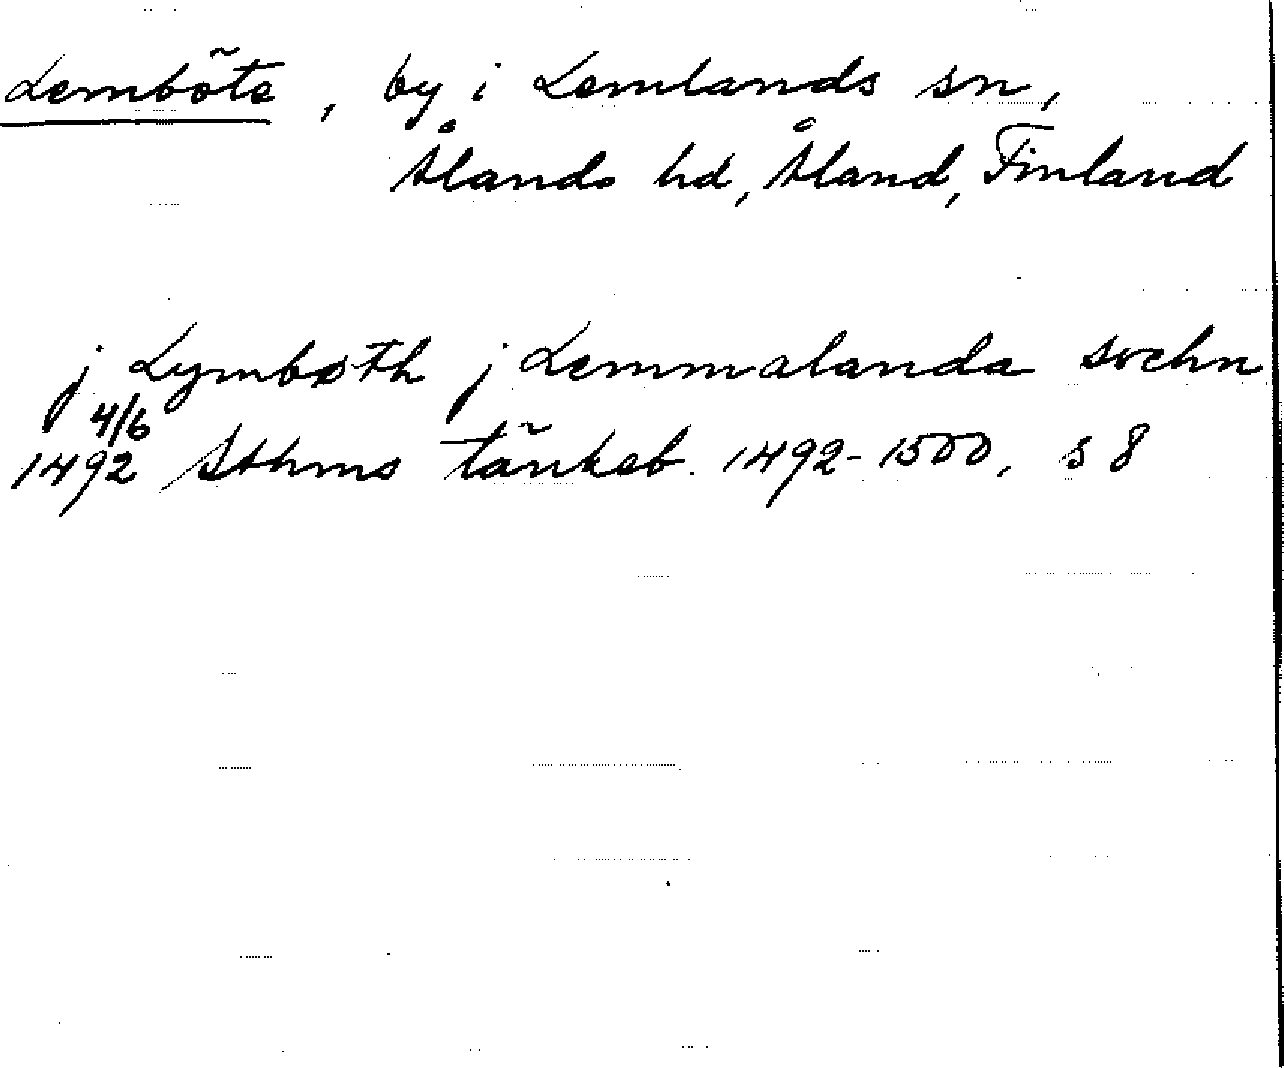 Lemböte, by i Lemlands sn,
Ålands hd, Åland, Finland
j Lymbøth j Lemmalanda sochn
4/6
1492 Sthms tänkeb. 1492-1500, s 8